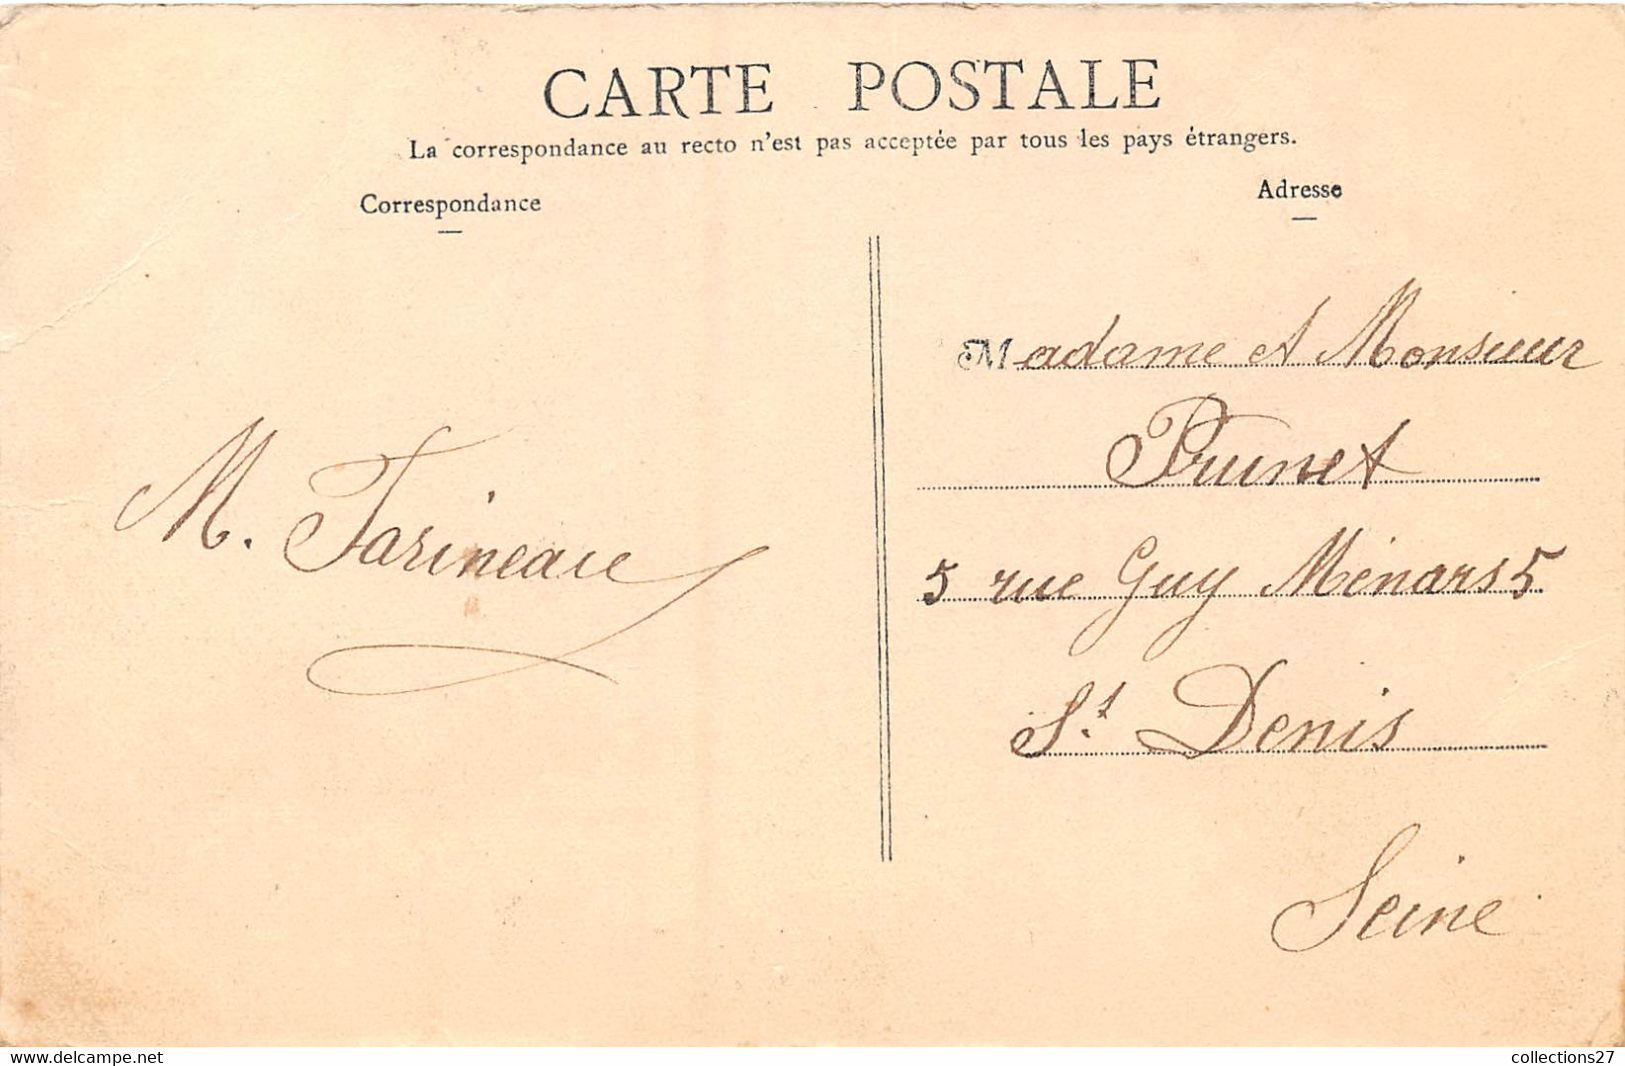 CARTE POSTALE
La correspondance au recto n'est pas acceptée par tous les pays étrangers.
Correspondance
Adresse
M. Farineau
Madame et Monsieur
Prunet
5 rue Guy Ménars 5
St. Denis
Seine
www.delcampe.net
collections27